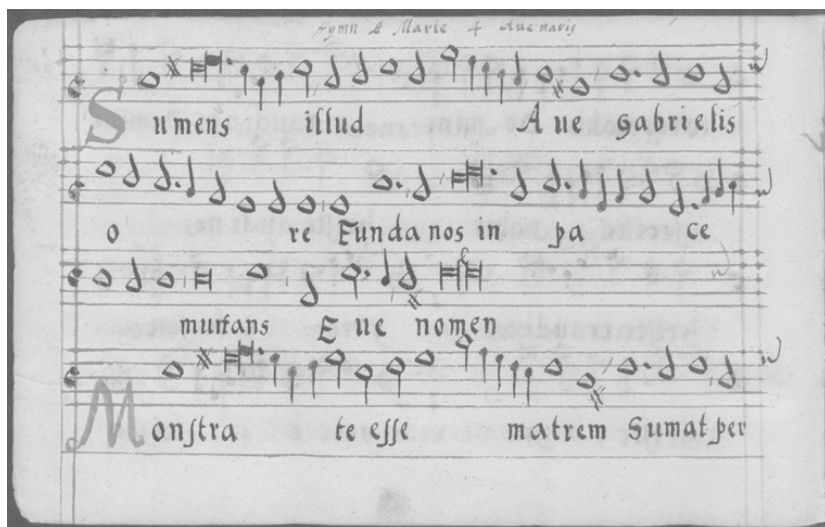 Hymn B Marie 4 Aue maris
Sumens illud Aue Gabrielis
o re Funda nos in pa ce
mutans Eue nomen
Monſtra te eſſe matrem Sumat per